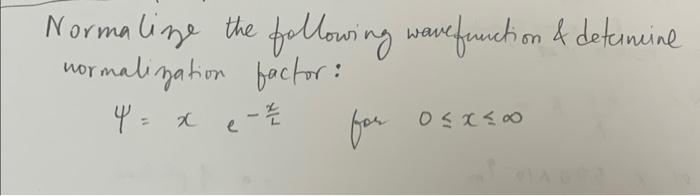 Normalize the following wavefunction & determine
normalization factor:
Ψ = x e^{-x/L} for 0 ≤ x ≤ ∞